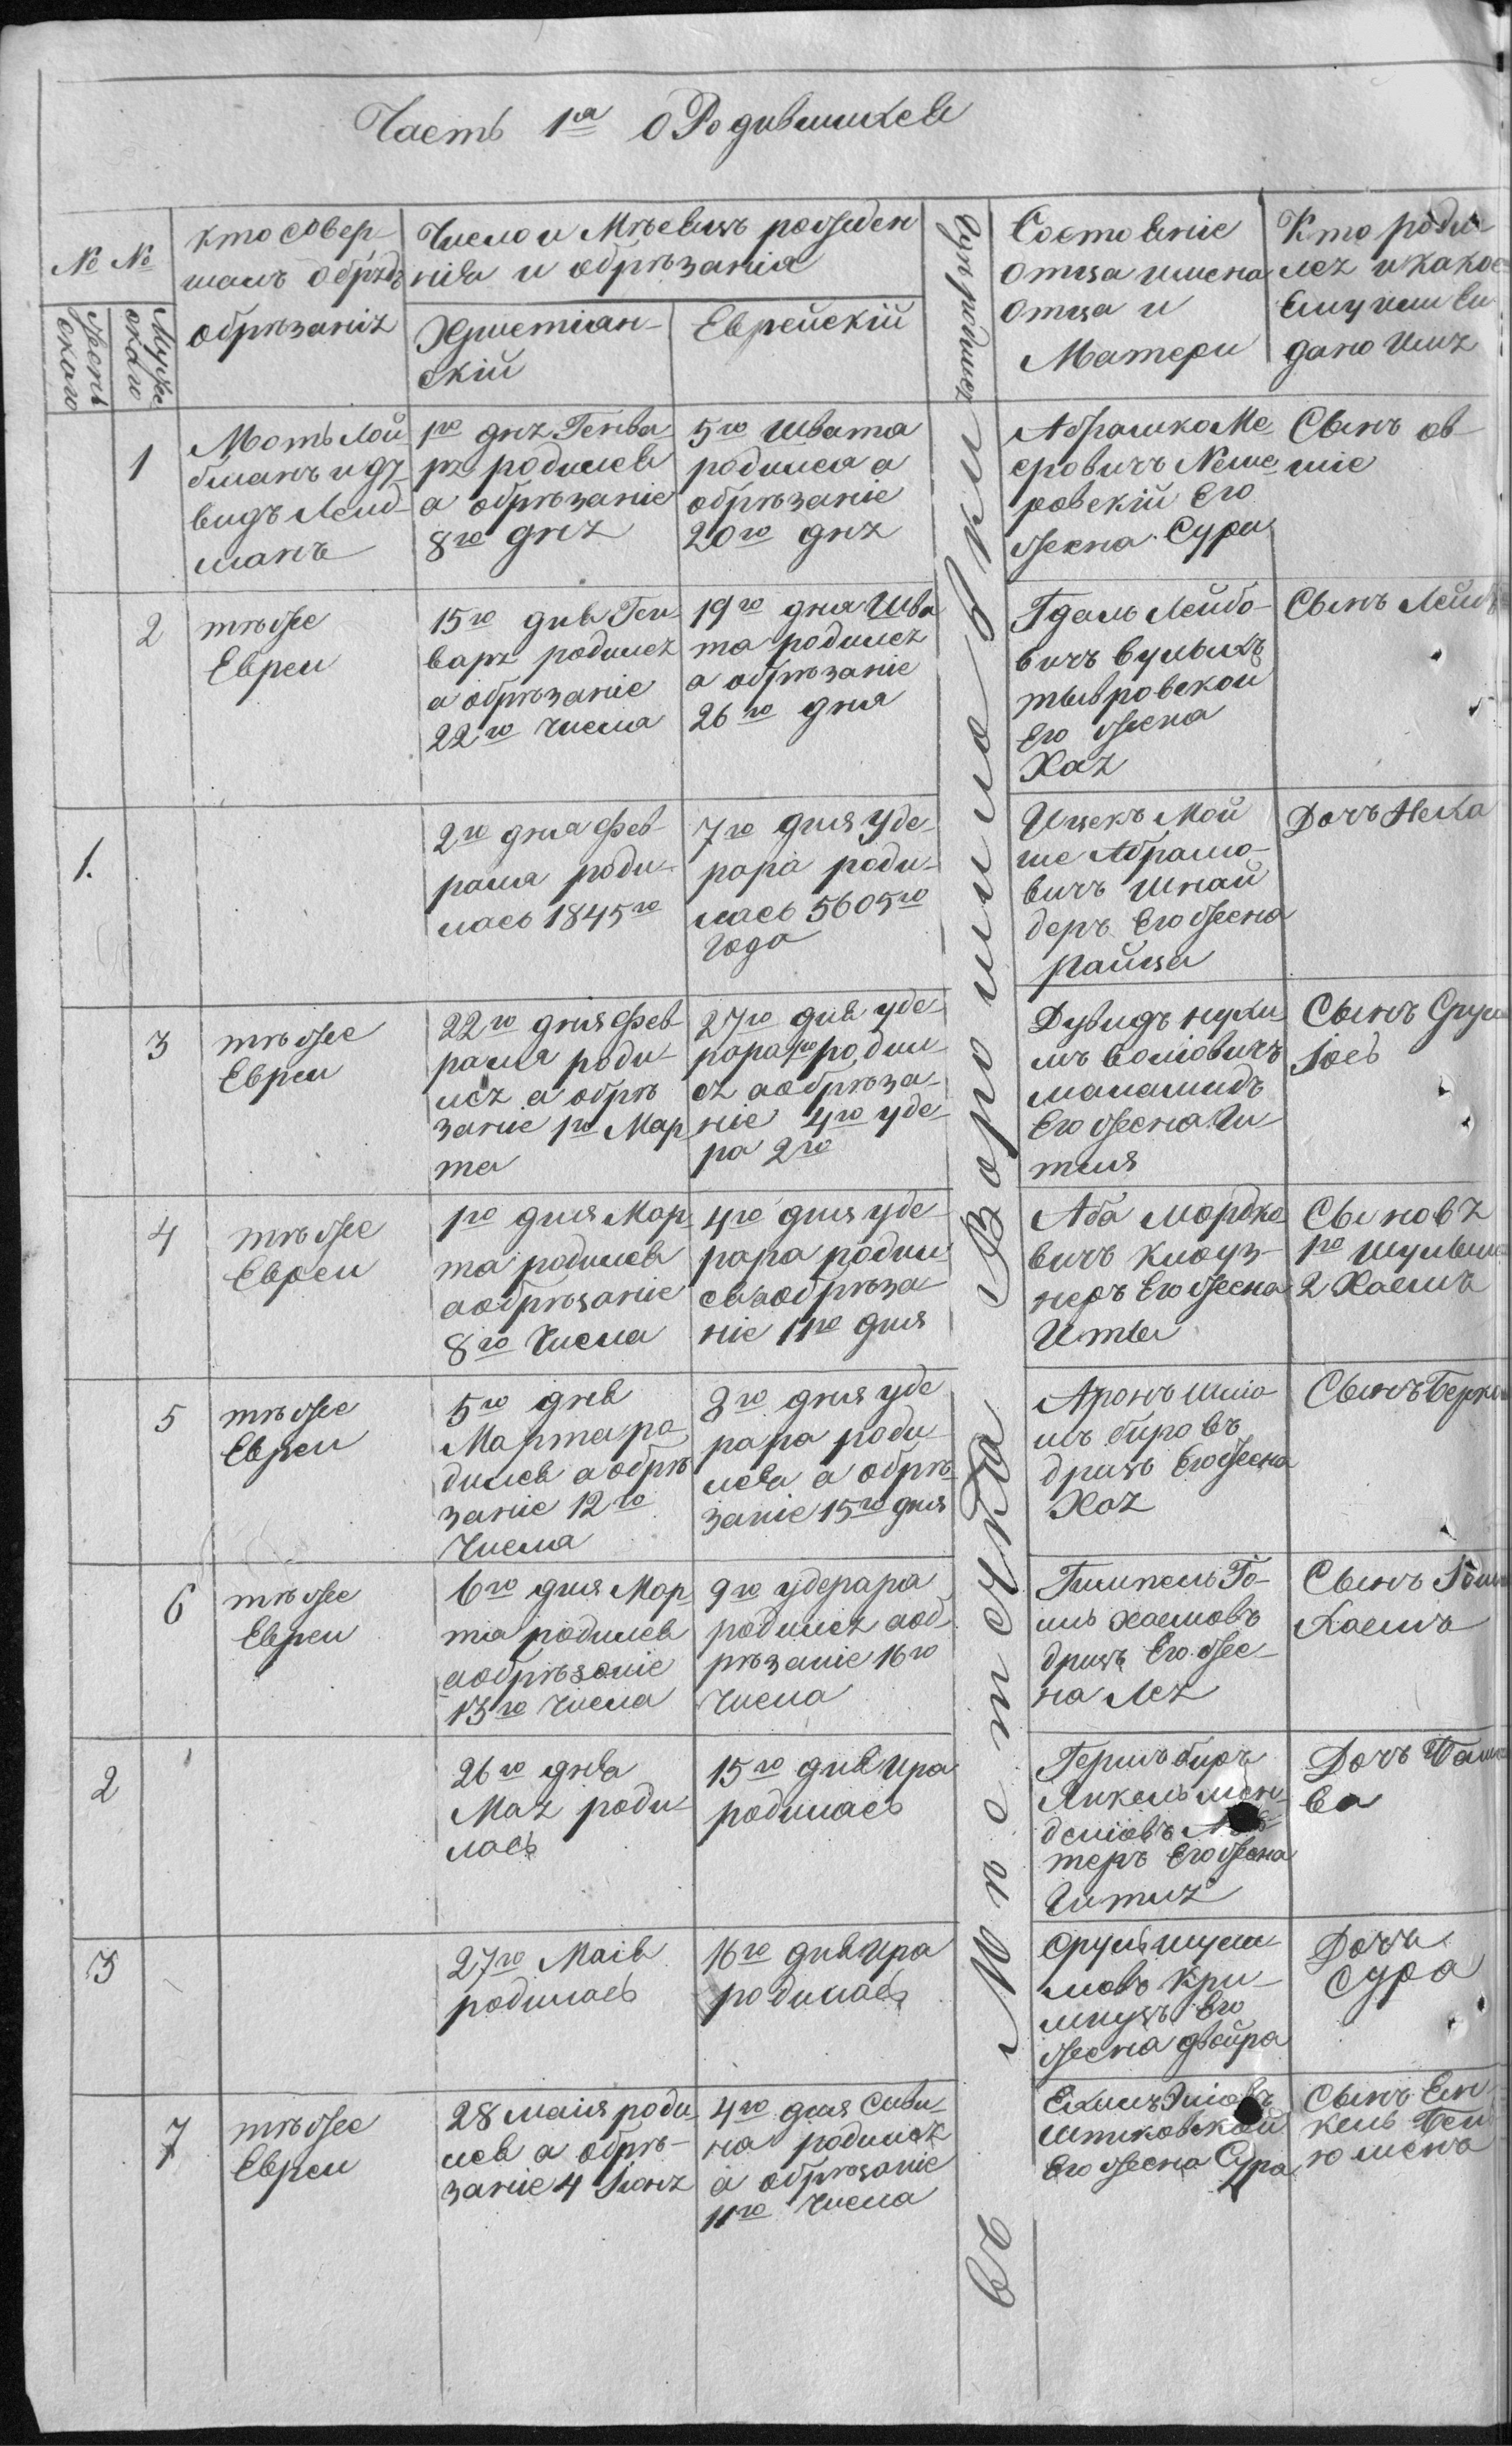 Часть 1ая о Родившихся
№ №
Женскаго
Мужескаго
кто совер-
шалъ обрядъ
обрѣзанія
Число и Мѣсяцъ рожден
нія и обрѣзанія
Христіан-
скій
Еврейскій
Гдѣ родился
Состояніе
отца имена
отца и
Матери
Кто роди
лся и какое
Ему или Ей
дано имя
1
Моть Лой
бманъ и Ду
видъ Лейд
манъ
1го дня Генва
ря родился
а обрѣзаніе
8го дня
5го Швата
родился а
обрѣзаніе
20го дня
Абрашко Ме
еровичъ Неме
ровскій Его
жена Сура
Сынъ ов
шіе
2
тѣже
Евреи
15го дня Ген
варя родился
а обрѣзаніе
22го числа
19го дня Шва
та родился
а обрѣзаніе
26го дня
Гдаль Лейбо-
вичъ
Его жена
Хая
Сынъ
1.
2го дня Фев
раля роди-
лась 1845го
7го дня уде
рара роди-
лась 5605го
года
Ицекъ Мой
ше Абрамо-
вичъ Шнай
деръ Его жена
Райца
Дочъ Неха
3
тѣже
Евреи
22го дня Фев
раля роди-
лся а обрѣ
заніе 1го Мар
та
27го дня уде
рара 1го родил
ся а обрѣза-
ніе 4го уде
ра 2го
Дувидъ нухи
мъ
маламидъ
Его жена Ги
тля
Сынъ Сруль
Іосъ
4
тѣже
Евреи
1го дня Мар
та родился
а обрѣзаніе
8го Числа
4го дня уде
рара родил
ся а обрѣза-
ніе 11го дня
Аба Мордко
вичъ
Его жена
Итля
Сыновя
1го
2 Хаемъ
5
тѣже
Евреи
5го дня
Марта ро
дился а обрѣ
заніе 12го
Числа
8го дня уде
рара роди
лся а обрѣ
заніе 15го дня
Аронъ Шліо
мъ бировъ
Его жена
Хая
Сынъ Берко
6
тѣже
Евреи
6го дня Мар
та родился
а обрѣзаніе
13го числа
9го удерара
родился а об
рѣзаніе 16го
Числа
Гимпель Го-
шъ Хаемовъ
Его же-
на Лея
Сынъ
Хаемъ
2
26го дня
Мая роди-
лась
15го дня Ира
родилась
Гершъ биръ
Янкель мен
деліовъ
теръ Его жена
Гитля
Дочъ Баш
ва
3
27го Маія
родилась
16го дня Ира
родилась
Сруль шуеш
мовъ
Его
жена двойра
Дочъ
Сура
7
тѣже
Евреи
28 маія роди
лся а обрѣ-
заніе 4 Іюня
4го дня Сиви
на родился
а обрѣзаніе
11го Числа
Штиковской
Его жена Сура
Сынъ Ен
кель Бен
юменъ
въ Мѣстечкѣ Ворошиловки